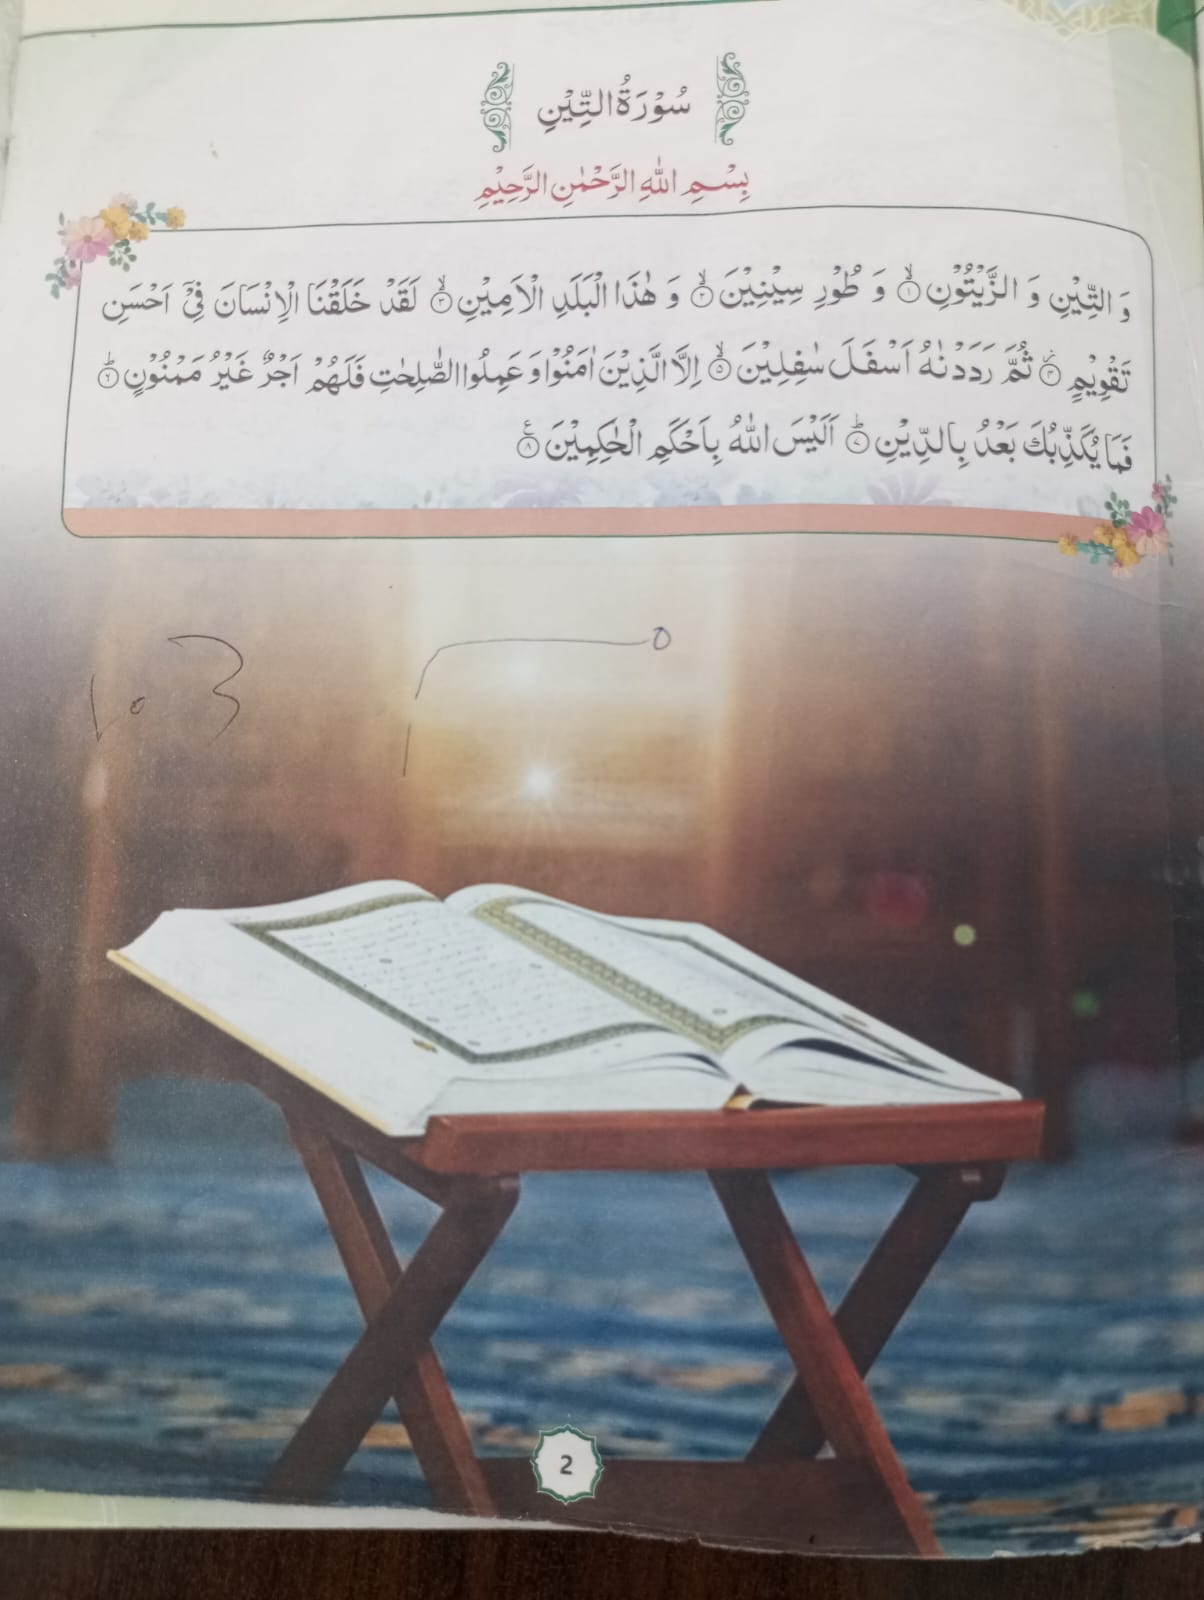 سُوْرَةُ التِّيْنِ
بِسْمِ اللّٰهِ الرَّحْمٰنِ الرَّحِيْمِ
وَ التِّيْنِ وَ الزَّيْتُوْنِ ۙ﴿۱﴾ وَ طُوْرِ سِيْنِيْنَ ۙ﴿۲﴾ وَ هٰذَا الْبَلَدِ الْاَمِيْنِ ۙ﴿۳﴾ لَقَدْ خَلَقْنَا الْاِنْسَانَ فِيْۤ اَحْسَنِ
تَقْوِيْمٍ ۫﴿۴﴾ ثُمَّ رَدَدْنٰهُ اَسْفَلَ سٰفِلِيْنَ ۙ﴿۵﴾ اِلَّا الَّذِيْنَ اٰمَنُوْا وَ عَمِلُوا الصّٰلِحٰتِ فَلَهُمْ اَجْرٌ غَيْرُ مَمْنُوْنٍ ؕ﴿۶﴾
فَمَا يُكَذِّبُكَ بَعْدُ بِالدِّيْنِ ؕ﴿۷﴾ اَلَيْسَ اللّٰهُ بِاَحْكَمِ الْحٰكِمِيْنَ ﴿۸﴾
2